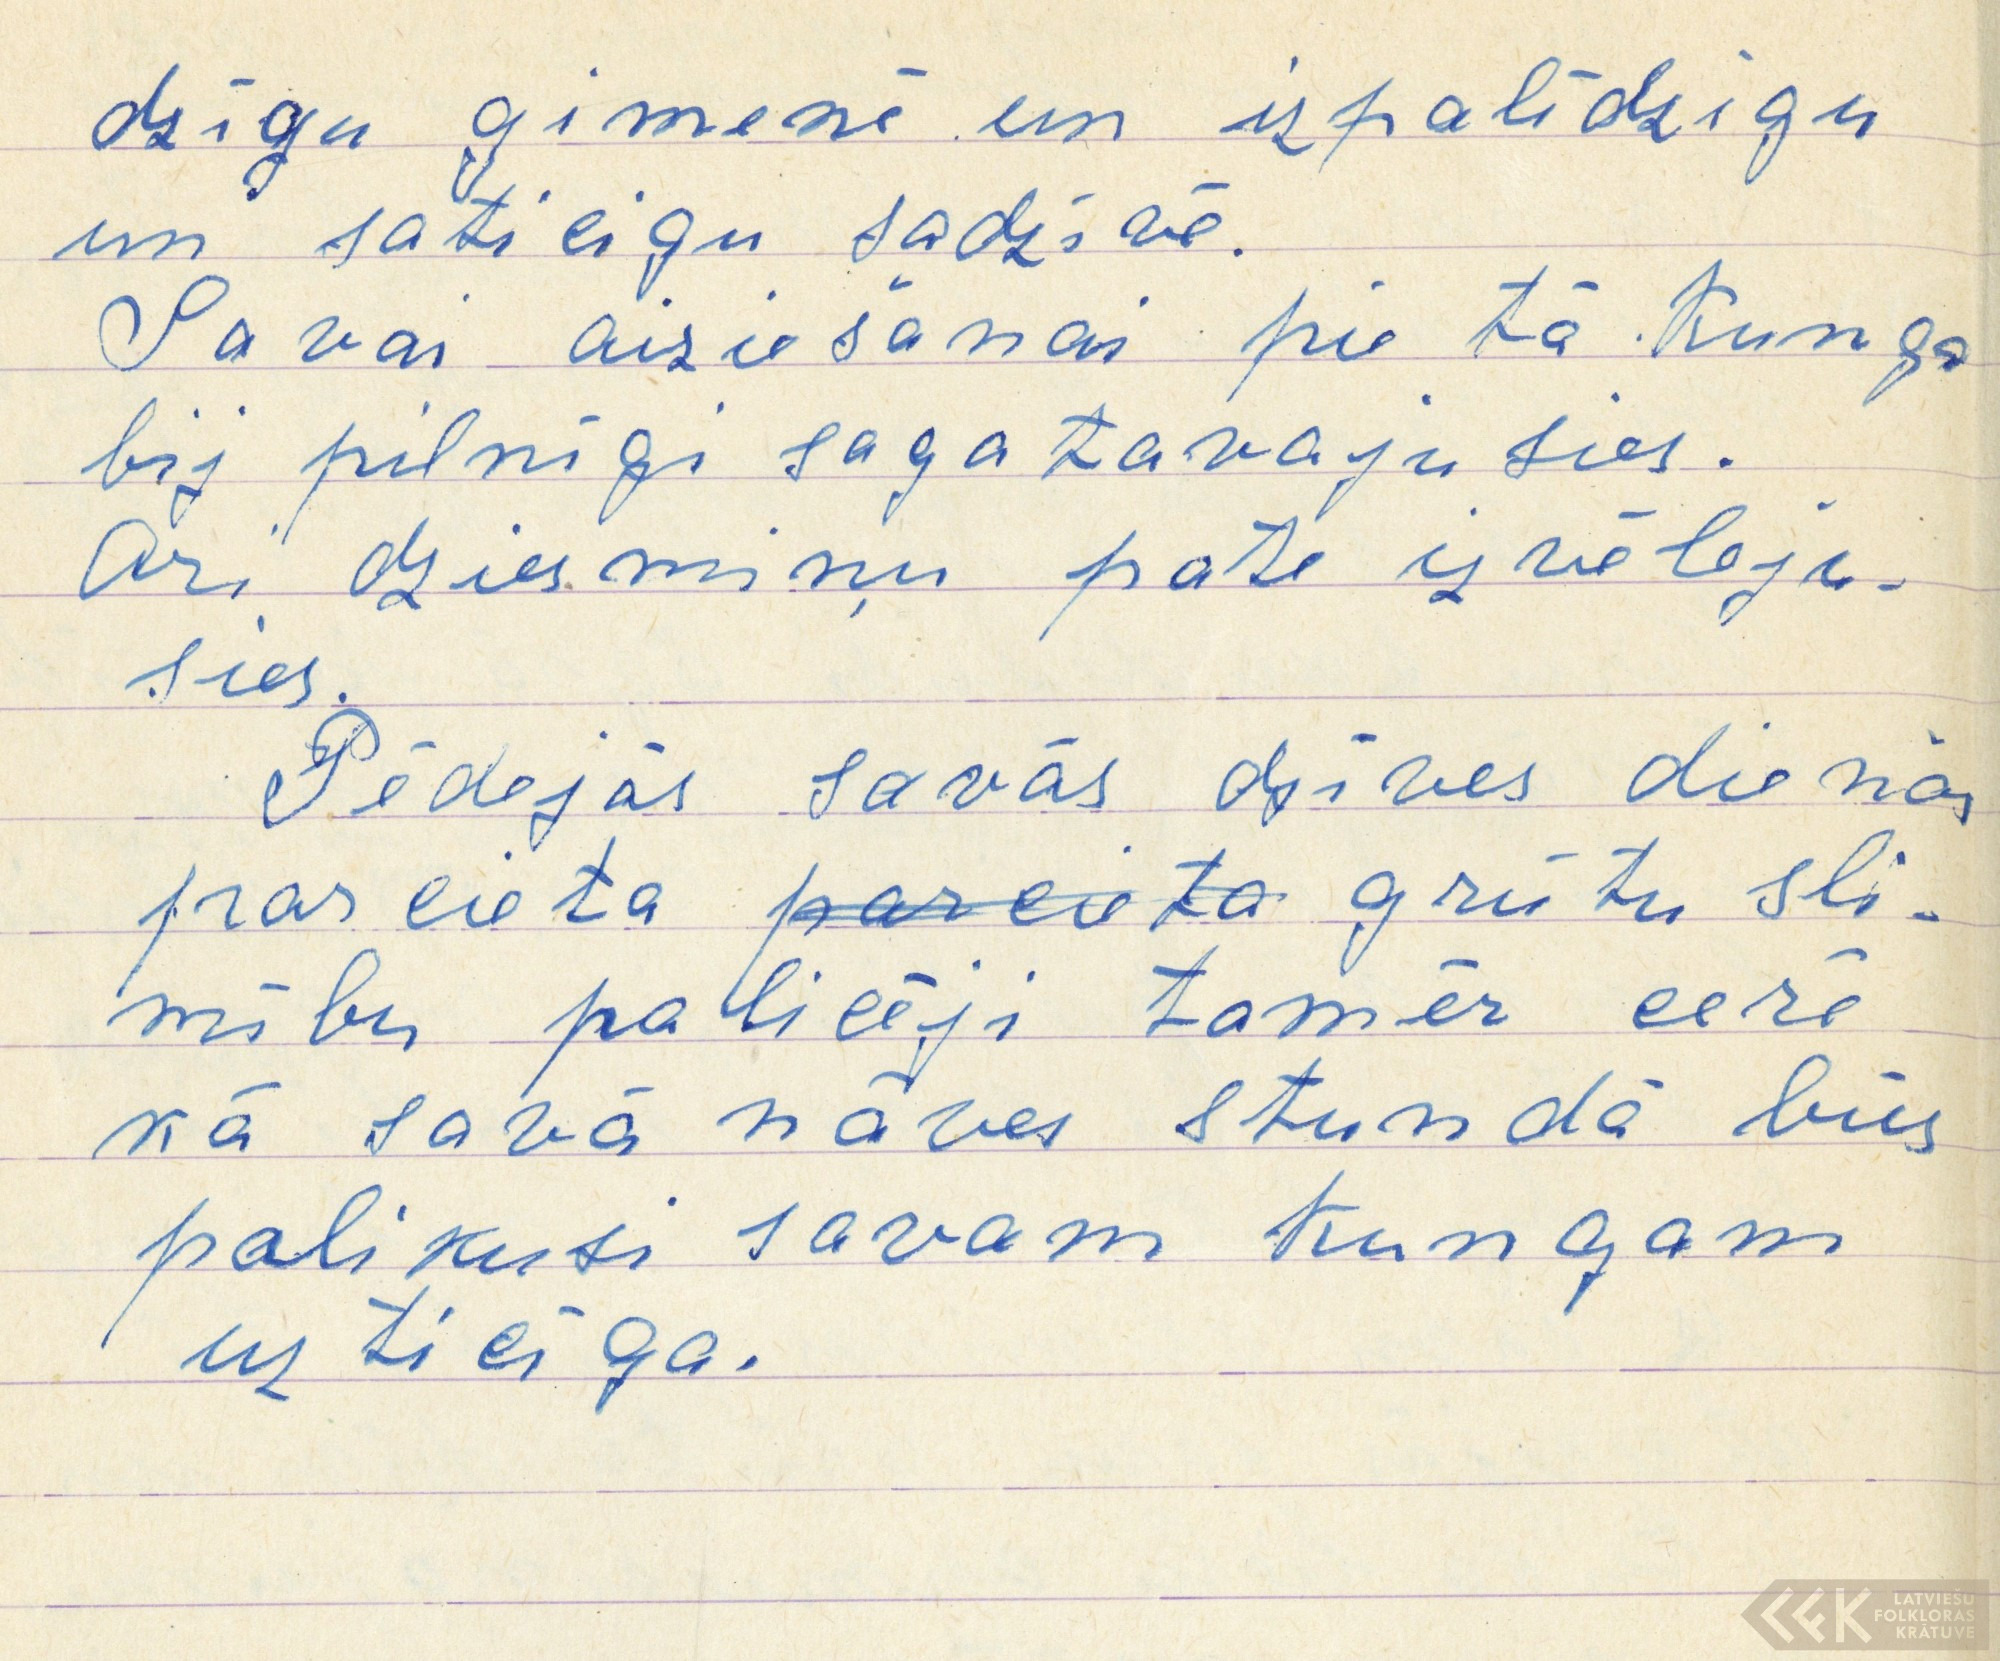 dzīgu ģimenē un izpalīdzīgu
un saticīgu sadzīvē.
Savai aiziešanai pie tā kunga
bij pilnīgi sagatavajusies.
Ari dziesmiņu pate izvēleju-
sies.
Pēdejās savās dzīves dienās
parcieta parcieta grūtu sli-
mību palicēji tamēr cerē
kā savā nāves stundā būs
palikusi savam kungam
uzticīga.
LATVIEŠU
FOLKLORAS
KRĀTUVE